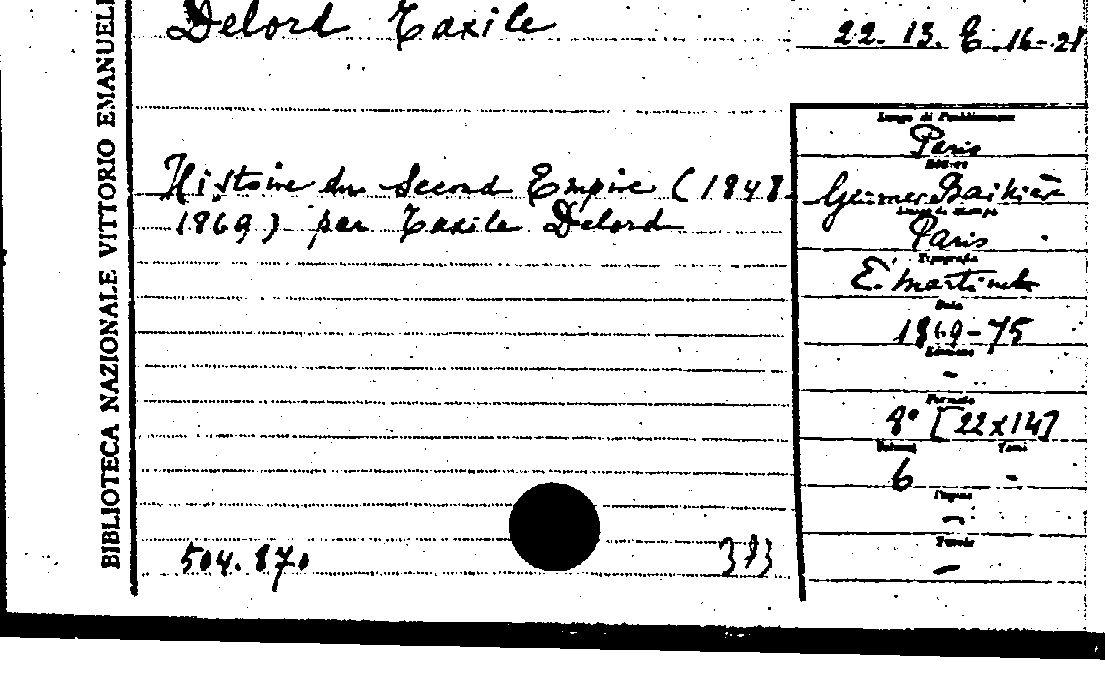 BIBLIOTECA NAZIONALE VITTORIO EMANUEL
Delord Taxile
22. 13. E. 16-21
Histoire du Second Empire (1848-
1869) par Taxile Delord
Luogo di Pubblicazione
Paris
Editore
Germer Bailière
Luogo di stampa
Paris
Tipografia
E. Martinet
Data
1869-75
Edizione
-
Formato
8° [22x14]
Volumi Tomi
6 -
Pagine
-
Tavole
-
504.870